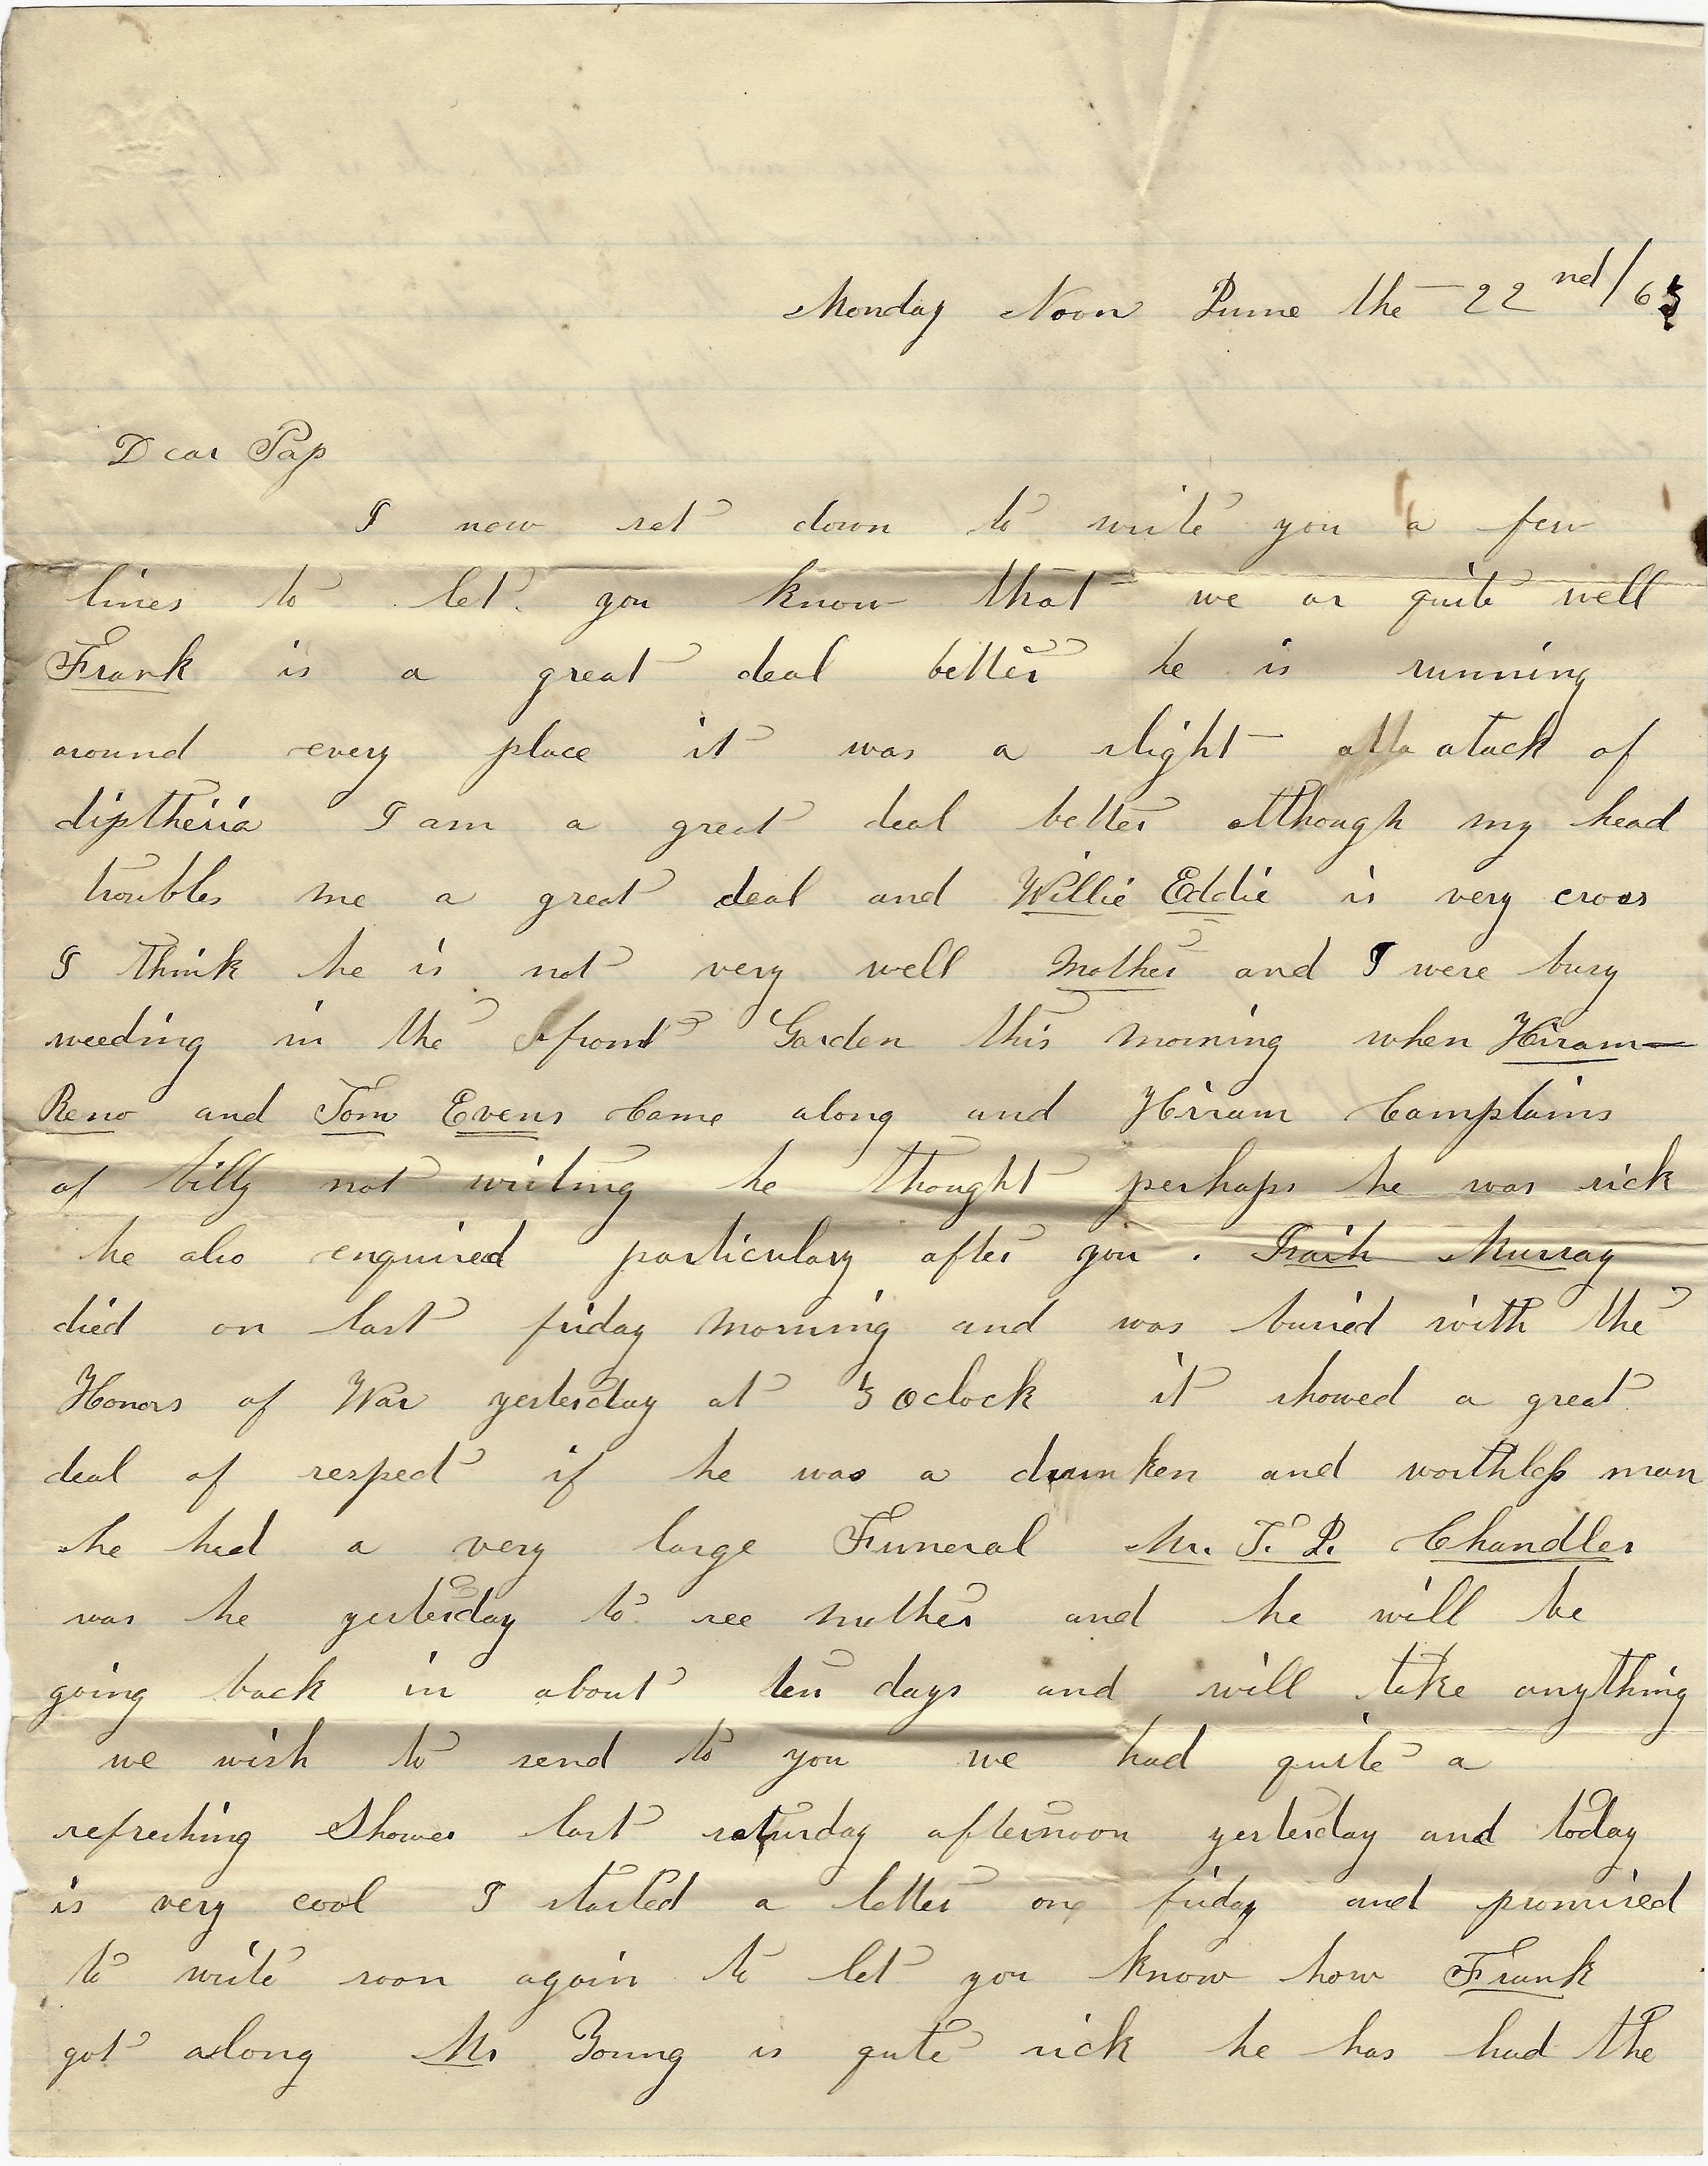 Monday Noon June the 22nd/63
Dear Pap
I now set down to write you a few
lines to let you know that we ar quite well
Frank is a great deal better he is running
around every place it was a slight atta atack of
diptheria I am a great deal better although my head
troubles me a great deal and Willie Eddie is very cross
I think he is not very well Mother and I were busy
weeding in the front Garden this morning when Hiram
Reno and Tom Evens Came along and Hiram Complains
of billy not writing he thought perhaps he was sick
he also enquired particulary after you . Murray
died on last friday morning and was buried with the
Honors of War yesterday at 5 Oclock it showed a great
deal of respect if he was a drunken and worthless man
he had a very large Funeral Mr. T. P. Chandler
was he yesterday to see mother and he will be
going back in about ten days and will take anything
we wish to send to you we had quite a
refreshing Shower last saturday afternoon yesterday and today
is very cool I started a letter on friday and promised
to write soon again to let you know how Frank
got along Mr Young is qute sick he has had the